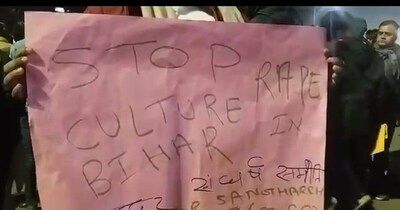 STOP RAPE
CULTURE IN
BIHAR
संघर्ष समीति
SANGHARSH